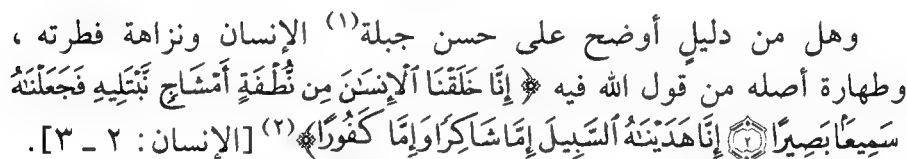 وهل من دليلٍ أوضح على حسن جبلة(١) الإنسان ونزاهة فطرته ،
وطهارة أصله من قول الله فيه ﴿ إِنَّا خَلَقْنَا ٱلْإِنسَٰنَ مِن نُّطْفَةٍ أَمْشَاجٍ نَّبْتَلِيهِ فَجَعَلْنَٰهُ
سَمِيعًۢا بَصِيرًا ۝٢ إِنَّا هَدَيْنَٰهُ ٱلسَّبِيلَ إِمَّا شَاكِرًا وَإِمَّا كَفُورًا﴾(٢) [الإنسان: ٢ ـ ٣].